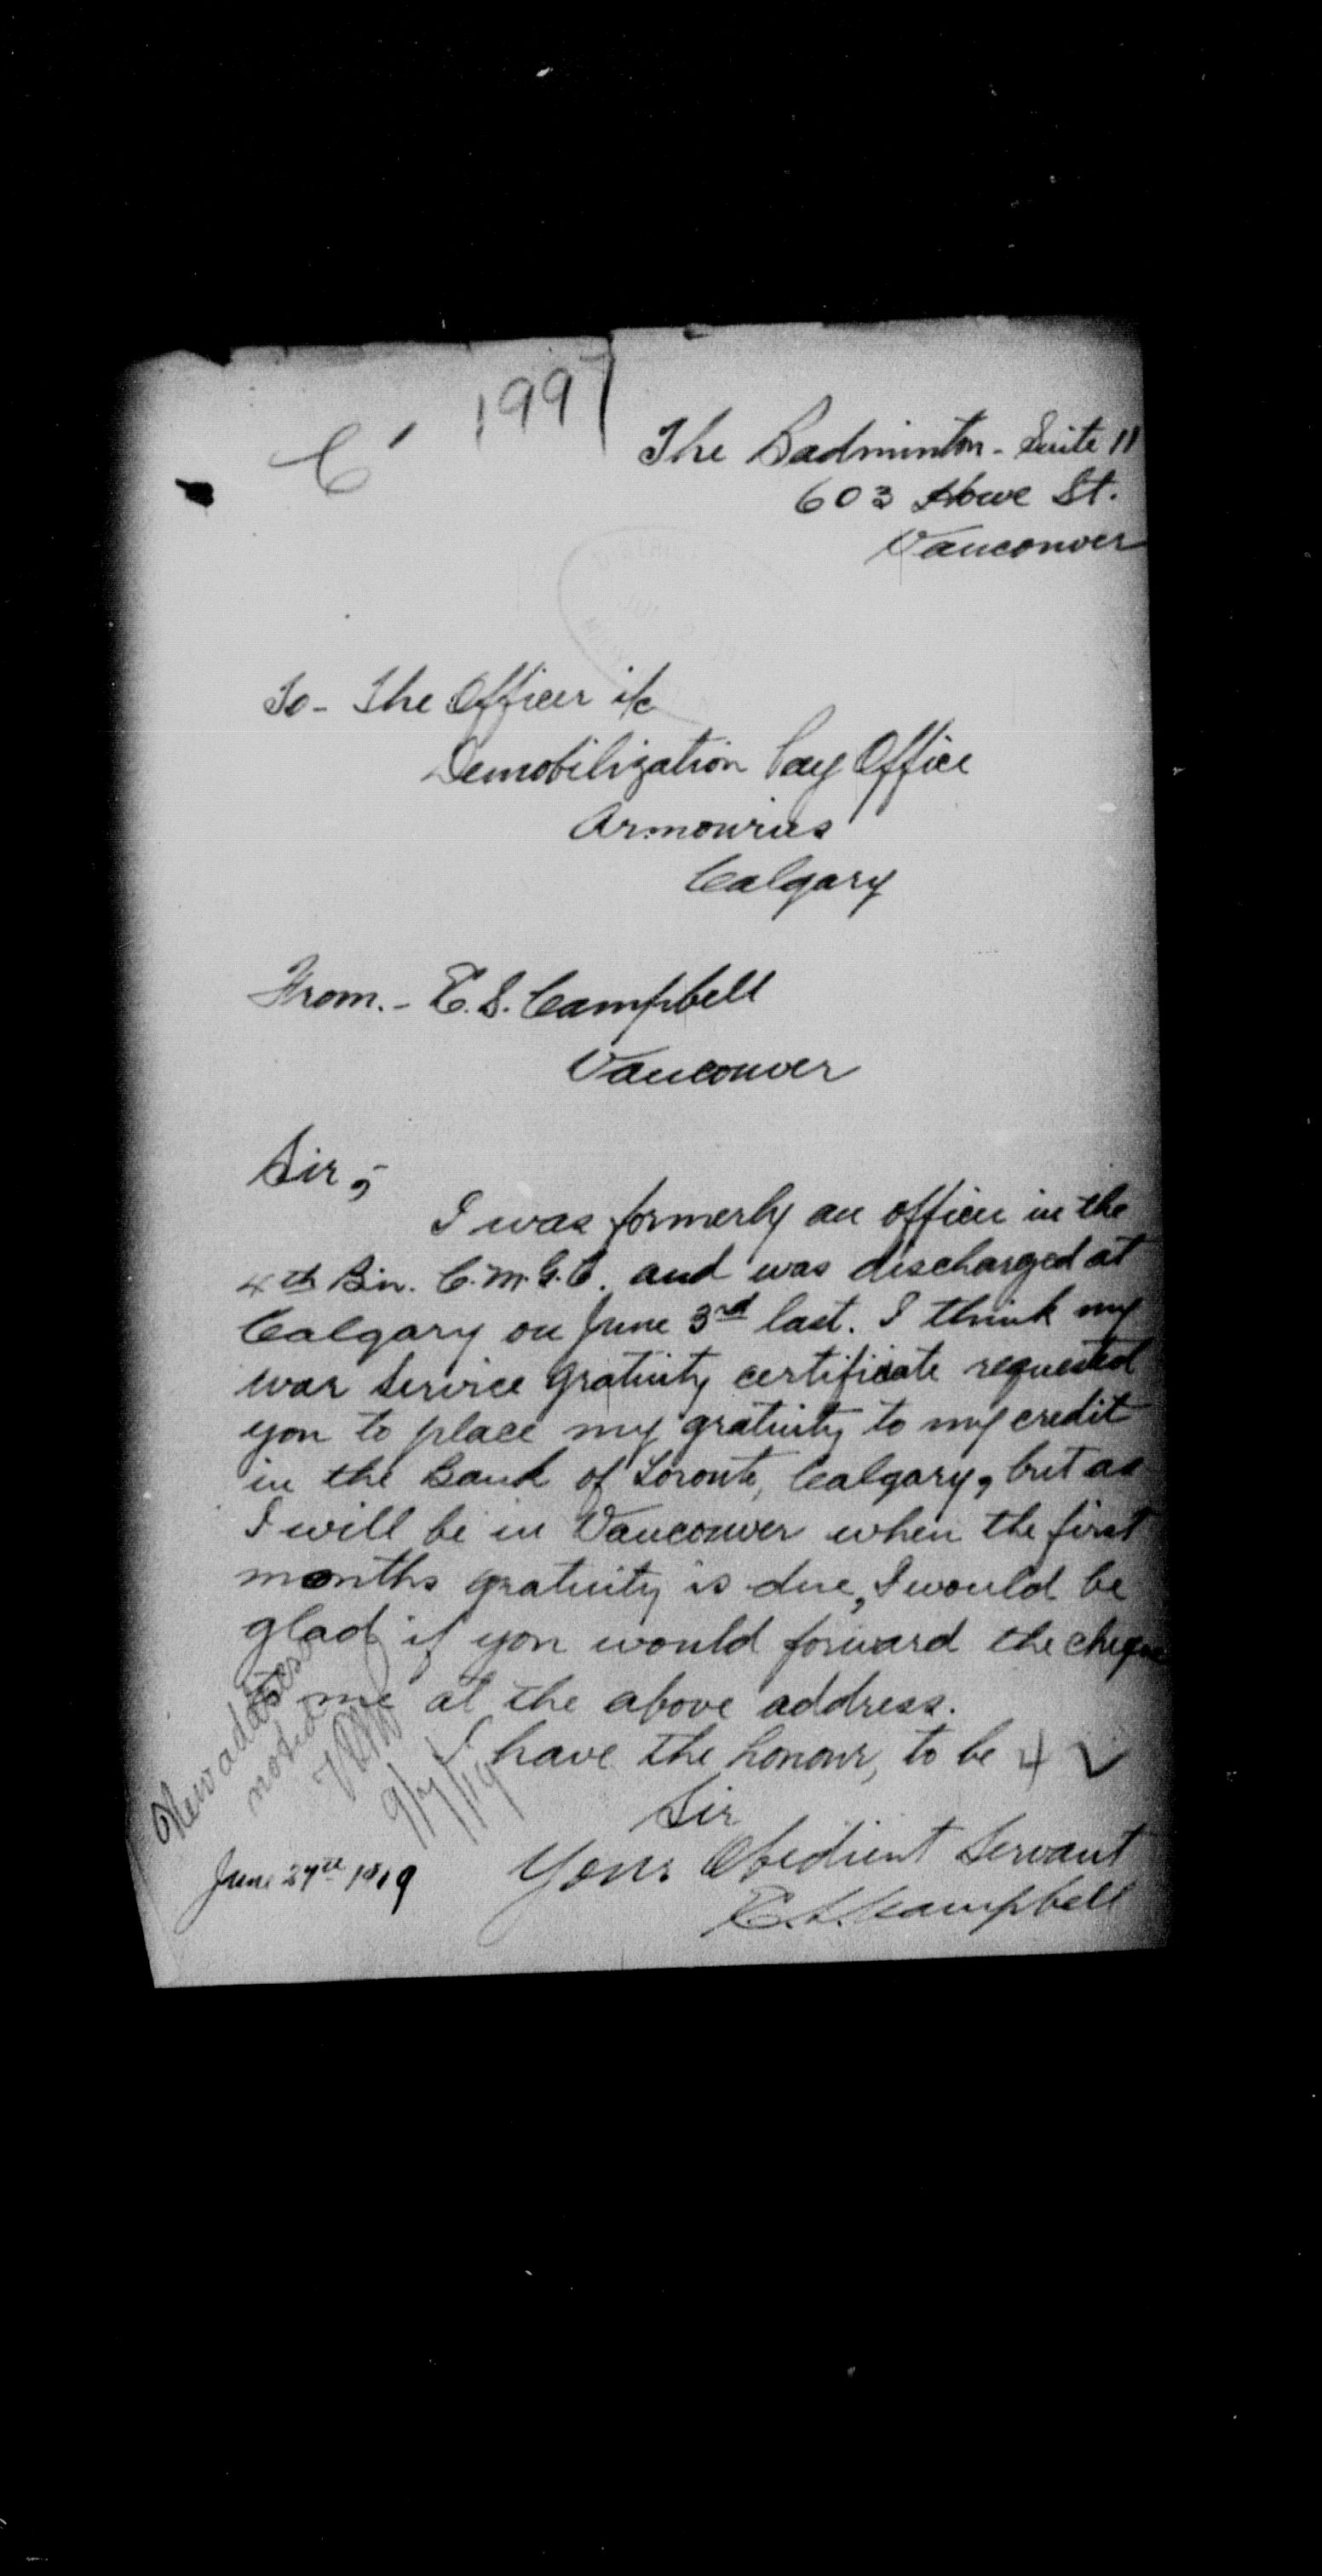 C'
1997
The Badminton - Suite 11
603 Howe St.
Vancouver
To - The Officer i/c
Demobilization Pay Office
Armouries
Calgary
From. - E. S. Campbell
Vancouver
Sir,-
I was formerly an officer in the
4th Bn. C.M.G.C. and was discharged at
Calgary on June 3rd last. I think my
war service gratuity certificate requested
you to place my gratuity to my credit
in the Bank of Toronto, Calgary, but as
I will be in Vancouver when the first
months gratuity is due, I would be
glad if you would forward the cheque
to me at the above address.
I have the honour, to be
Sir
Your Obedient Servant
E. S. Campbell
June 27th 1919
New address
noted
9/7/19